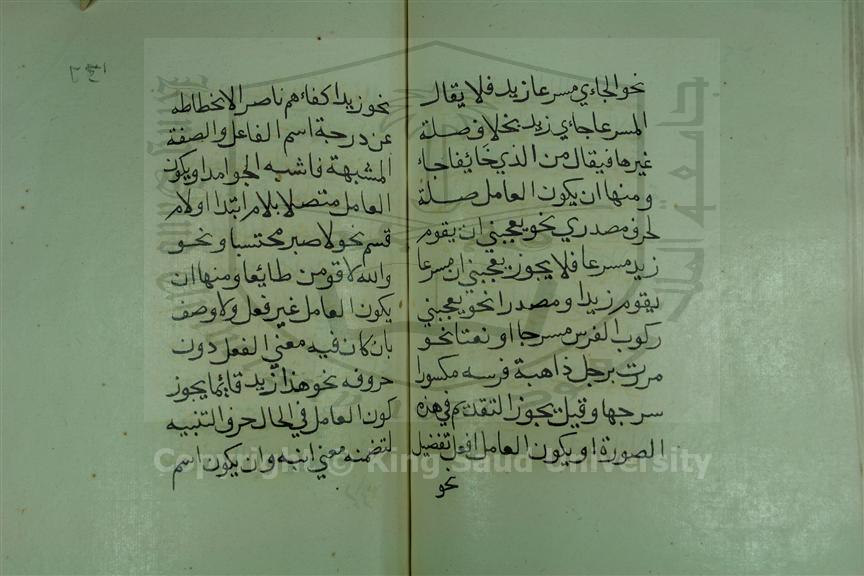 نحو الجاءي مسرعا زيد فلا يقال
المسرعا جاءي زيد بخلاف صلة
غيرها فيقال من الذي خائفا جاء
ومنها ان يكون العامل صلة
لحرف مصدري نحو يعجبني ان يقوم
زيد مسرعا فلا يجوز يعجبني ان مسرعا
يقوم زيدا ومصدرا نحو يعجبني
ركوب الفرس مسرجا او نعتا نحو
مررت برجل ذاهبة فرسه مكسورا
سرجها وقيل يجوز التقديم في هذه
الصورة او يكون العامل افعل تفضيل
نحو
نحو زيد اكفاءهم ناصرا لانحطاطه
عن درجة اسم الفاعل والصفة
المشبهة فاشبه الجوامد او يكون
العامل متصلا بلام ابتدا او لام
قسم نحو لاصبر محتسبا ونحو
والله لاقومن طايعا ومنها ان
يكون العامل غير فعل ولا وصف
بان كان فيه معني الفعل دون
حروفه نحو هذا زيد قايما يجوز
كون العامل في الحال حرف التنبيه
لتضمنه معني انبه وان يكون اسم
Copyright © King Saud University